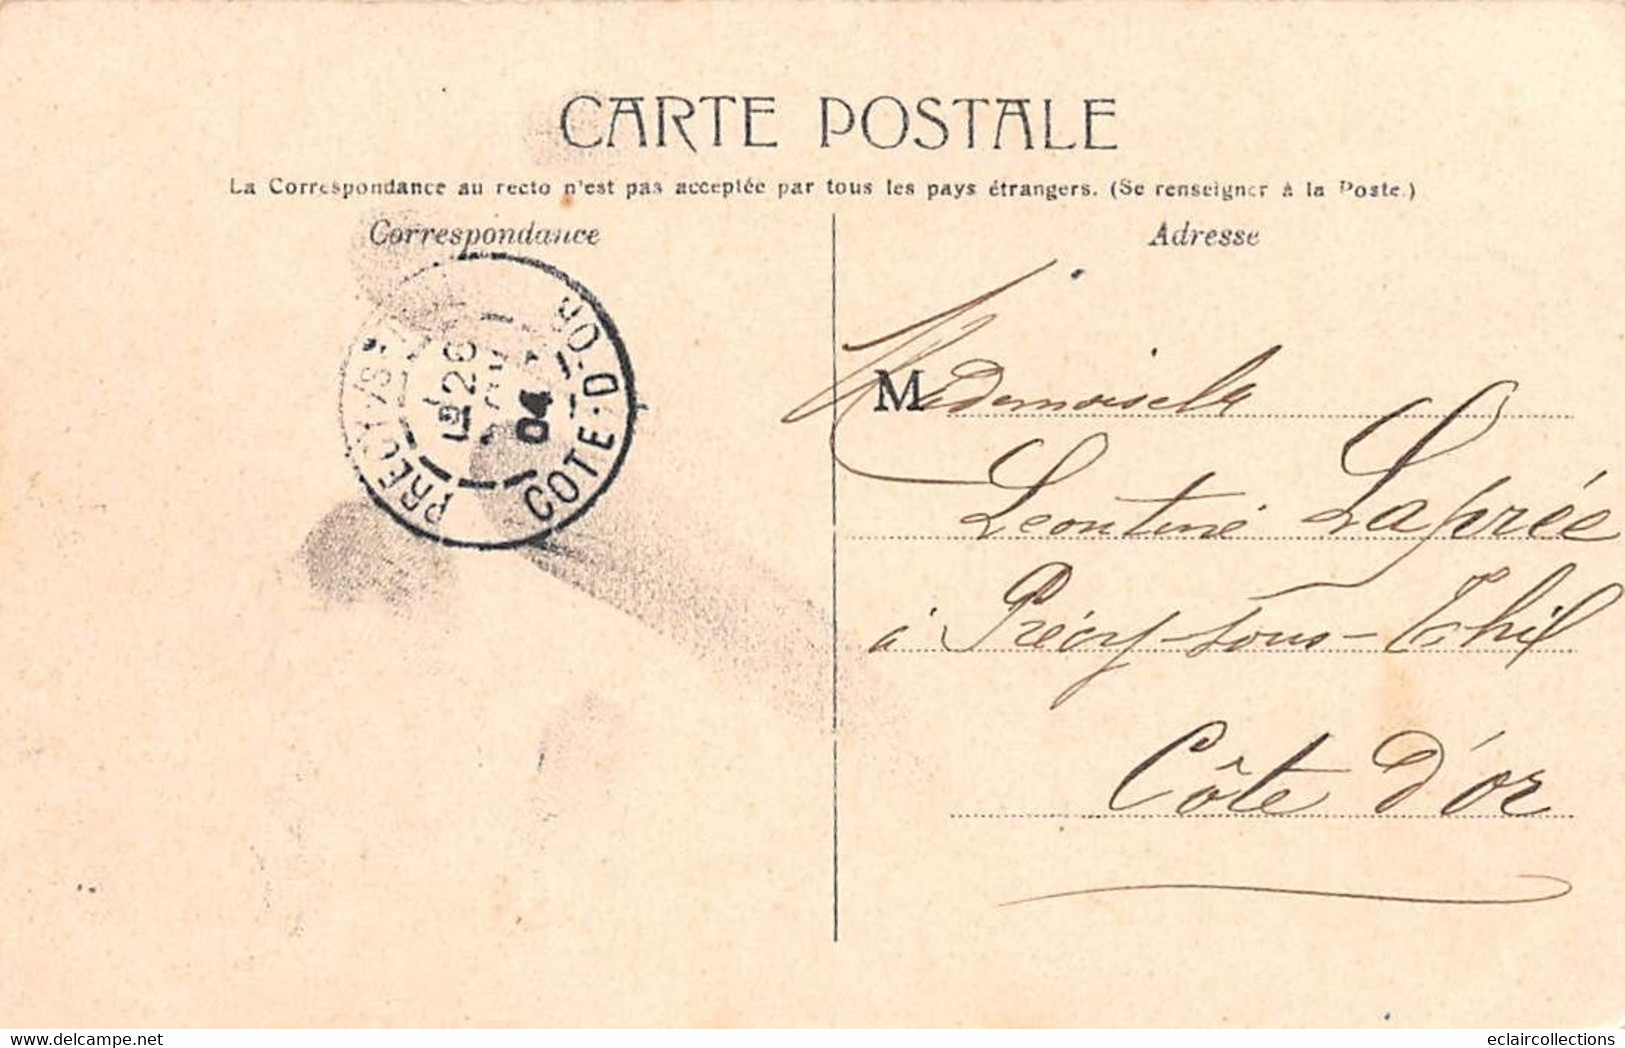 CARTE POSTALE
La Correspondance au recto n'est pas acceptée par tous les pays étrangers. (Se renseigner à la Poste.)
Correspondance
PRÉCY
COTE-D'OR
26
04
Adresse
M
Mademoiselle
Leontine Laprée
à Précy-sous-Thil
Côte d'or
eclaircollections